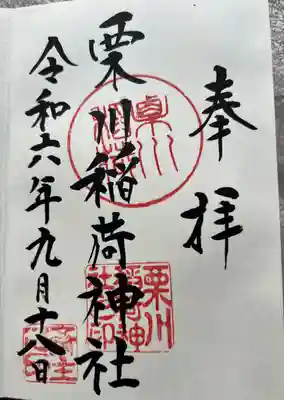 奉拝
栗川稲荷神社
令和六年九月十八日
栗川
稲荷神
社印